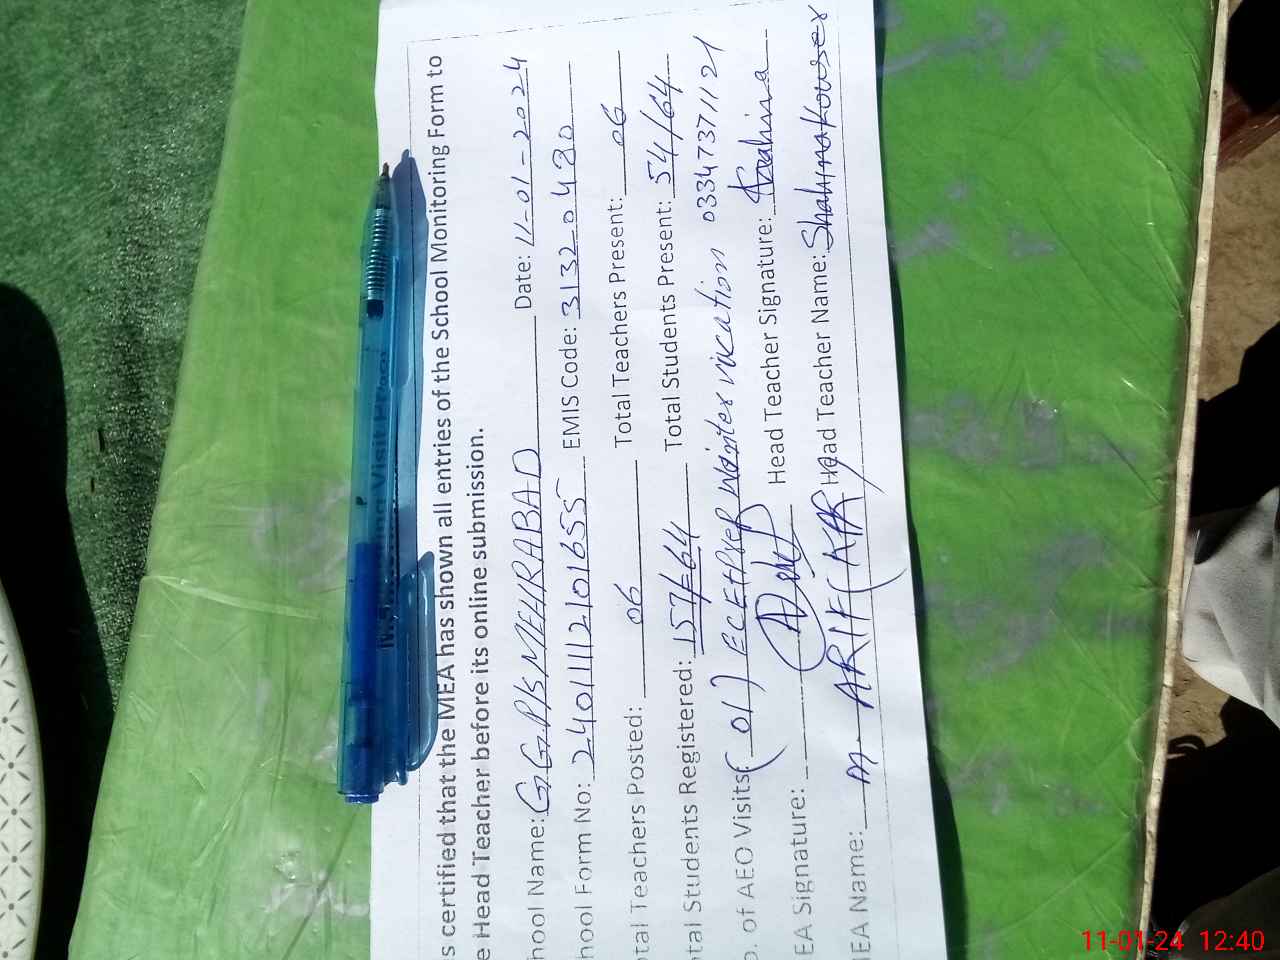 s certified that the MEA has shown all entries of the School Monitoring Form to
e Head Teacher before its online submission.
hool Name: G.G.P/S MEHRABAD Date: 11-01-2024
hool Form No: 24011112101655 EMIS Code: 31320480
tal Teachers Posted: 06 Total Teachers Present: 06
tal Students Registered: 157/64 Total Students Present: 54/64
o. of AEO Visits: (01) ECE+Prep Winter vication 03347371121
EA Signature: Head Teacher Signature:
IEA Name: M. ARIF Head Teacher Name: Shahinakowser
11-01-24 12:40